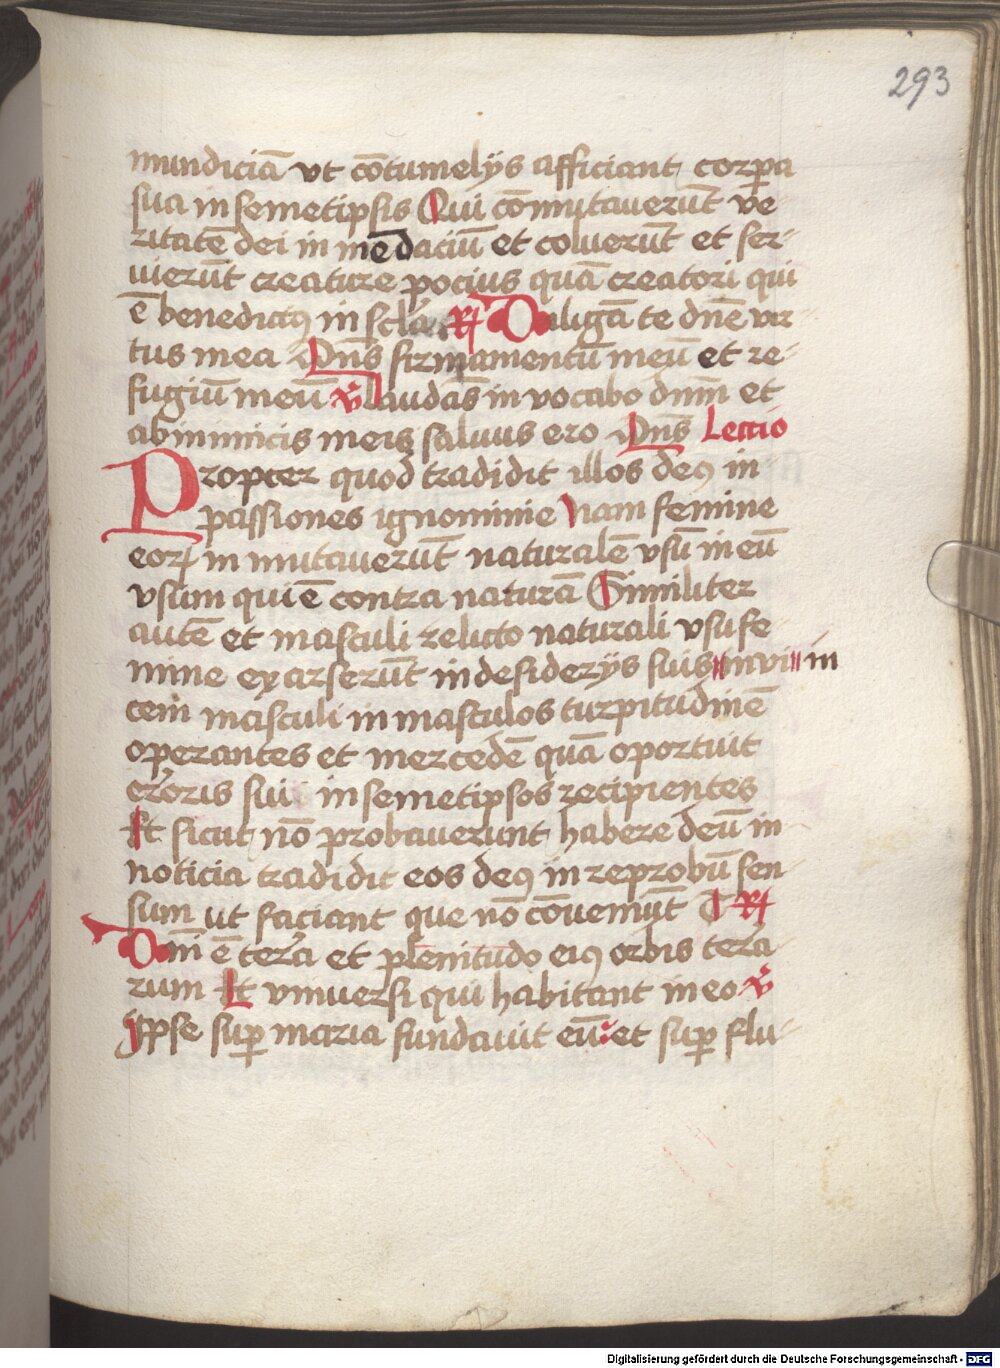 293
mundiciā vt cōtumelijs afficiant corꝑa
sua in semetipsis Qui cōmutaverūt ve-
ritatē dei in mēdaciū et coluerūt et ser-
uierūt creature pocius quā creatori qui
ē benedictꝰ in scl̄a R͛ Diligā te dn̄e vir
tus mea Dn̄s firmamentū meū et re-
fugiū meū v̄ Laudās in vocabo dn̄m et
ab inimicis meis saluus ero Dn̄s Lectio
Propter quod tradidit illos deꝰ in
passiones ignominie Nam femine
eoꝝ in mutaverūt naturalē vsū in eū
vsum qui ē contra naturā Similiter
autē et masculi relicto naturali vsu fe-
mine exarserūt in desiderijs suis in vi in
cem masculi in masculos turpitudinē
operantes et mercedē quā oportuit
erroris sui in semetipsos recipientes
Et sicut nō probaverunt habere deū in
noticia tradidit eos deꝰ in reprobū sen
sum ut faciant que nō cōveniūt T R͛
Dn̄i ē terra et plenitudo eiꝰ orbis terra
rum Et vniuersi qui habitant in eo v̄
Ipse suꝑ maria fundauit eū et suꝑ flu-
Digitalisierung gefördert durch die Deutsche Forschungsgemeinschaft - DFG